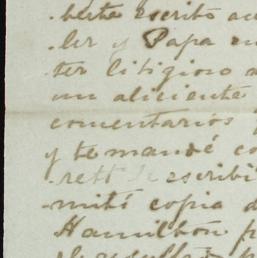 berte escrito au
ler y Papa en
ter litigioso a
un aliciente
comentarios
y te mandé co
rett le escribi
mité copia d
Hamilton f